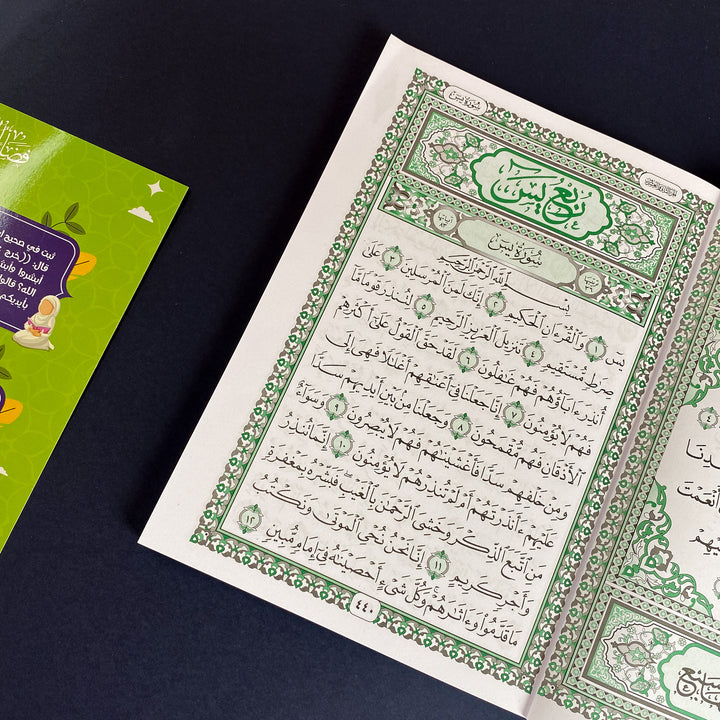 سُورَةُ يسٓ
رُبْعُ يسٓ
سُورَةُ يسٓ
بِسْمِ ٱللَّهِ ٱلرَّحْمَٰنِ ٱلرَّحِيمِ
يسٓ ١ وَٱلْقُرْءَانِ ٱلْحَكِيمِ ٢ إِنَّكَ لَمِنَ ٱلْمُرْسَلِينَ ٣ عَلَىٰ
صِرَٰطٍ مُّسْتَقِيمٍ ٤ تَنزِيلَ ٱلْعَزِيزِ ٱلرَّحِيمِ ٥ لِتُنذِرَ قَوْمًا مَّآ
أُنذِرَ ءَابَآؤُهُمْ فَهُمْ غَٰفِلُونَ ٦ لَقَدْ حَقَّ ٱلْقَوْلُ عَلَىٰٓ أَكْثَرِهِمْ
فَهُمْ لَا يُؤْمِنُونَ ٧ إِنَّا جَعَلْنَا فِىٓ أَعْنَٰقِهِمْ أَغْلَٰلًا فَهِىَ إِلَى
ٱلْأَذْقَانِ فَهُم مُّقْمَحُونَ ٨ وَجَعَلْنَا مِنۢ بَيْنِ أَيْدِيهِمْ سَدًّا
وَمِنْ خَلْفِهِمْ سَدًّا فَأَغْشَيْنَٰهُمْ فَهُمْ لَا يُبْصِرُونَ ٩ وَسَوَآءٌ
عَلَيْهِمْ ءَأَنذَرْتَهُمْ أَمْ لَمْ تُنذِرْهُمْ لَا يُؤْمِنُونَ ١٠ إِنَّمَا تُنذِرُ
مَنِ ٱتَّبَعَ ٱلذِّكْرَ وَخَشِىَ ٱلرَّحْمَٰنَ بِٱلْغَيْبِ فَبَشِّرْهُ بِمَغْفِرَةٍ
وَأَجْرٍ كَرِيمٍ ١١ إِنَّا نَحْنُ نُحْىِ ٱلْمَوْتَىٰ وَنَكْتُبُ
مَا قَدَّمُوا۟ وَءَاثَٰرَهُمْ وَكُلَّ شَىْءٍ أَحْصَيْنَٰهُ فِىٓ إِمَامٍ مُّبِينٍ ١٢
٤٤٠
ثبت في صحيح
قال: ((خرج
أبشروا
الله؟ قالوا
بأيديكم
أَنْعَمْتَ